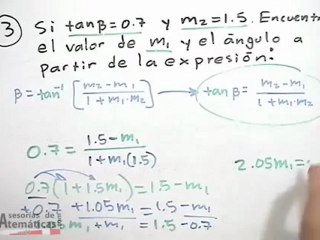 3 Si tanβ=0.7 y m₂=1.5. Encuentra
el valor de m₁ y el ángulo a
partir de la expresión:
β = tan⁻¹ [m₂-m₁ / 1+m₁·m₂] → tanβ = m₂-m₁ / 1+m₁·m₂
0.7 = 1.5-m₁ / 1+m₁(1.5)
2.05m₁=
0.7(1+1.5m₁)=1.5-m₁
0.7 + 1.05m₁ = 1.5-m₁
m₁ +m₁ = 1.5-0.7
Asesorías de
Matemáticas